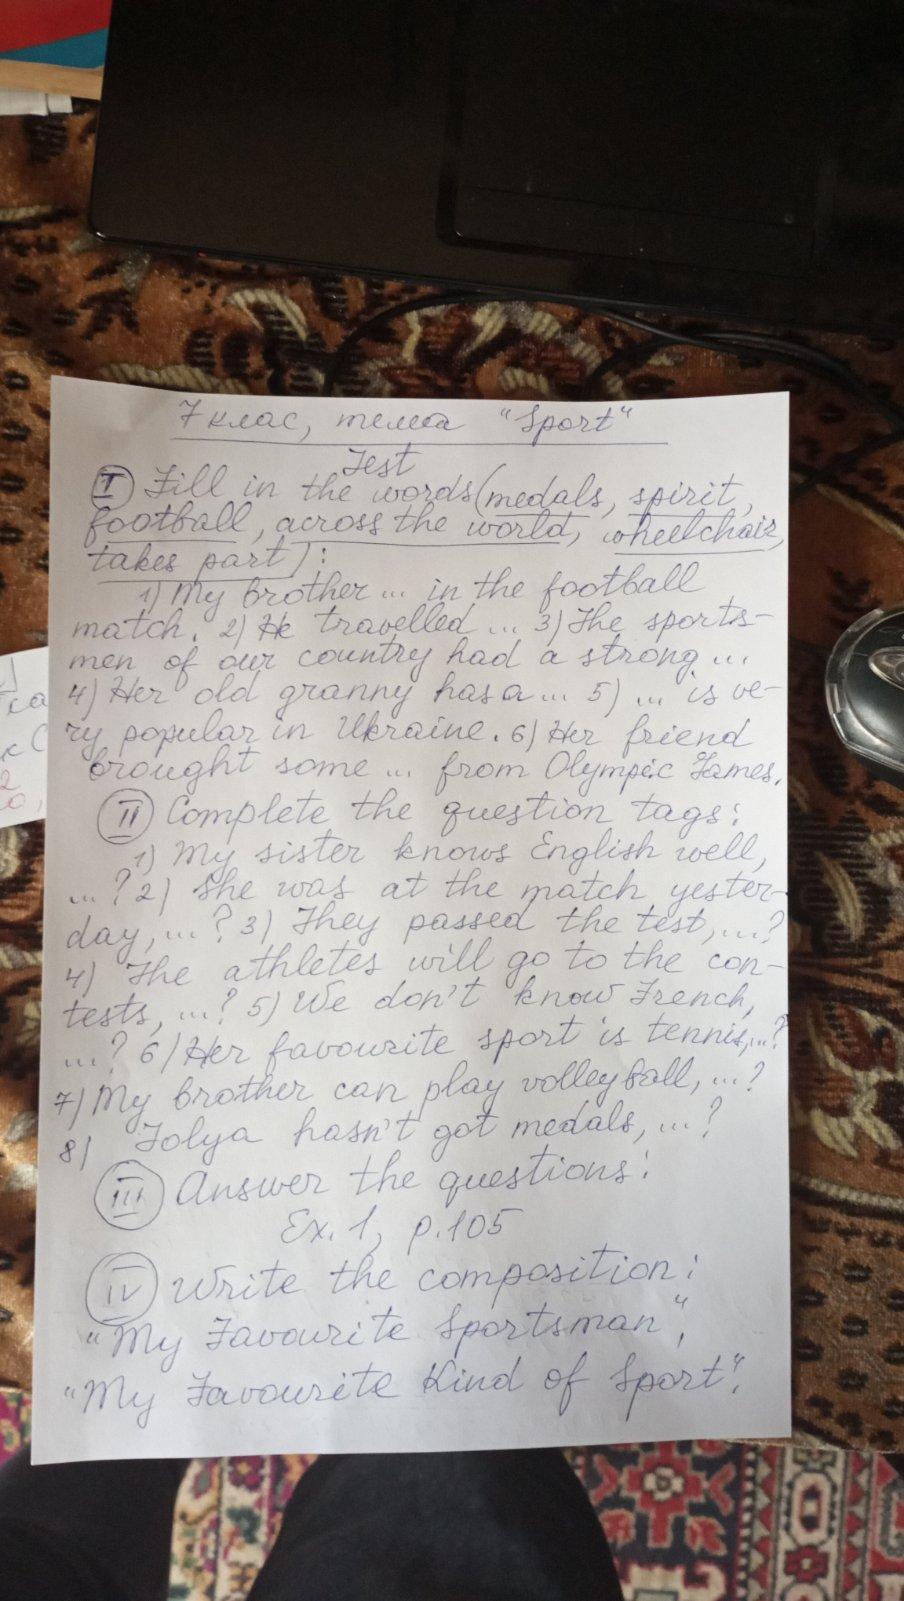 7 клас, тема "Sport"
Test
I Fill in the words (medals, spirit,
football, across the world, wheelchair,
takes part):
1) My brother ... in the football
match. 2) He travelled ... 3) The sports-
men of our country had a strong ...
4) Her old granny has a ... 5) ... is ve-
ry popular in Ukraine. 6) Her friend
brought some ... from Olympic Games.
II Complete the question tags:
1) My sister knows English well,
...? 2) She was at the match yester-
day, ...? 3) They passed the test, ...?
4) The athletes will go to the con-
tests, ...? 5) We don't know French,
...? 6) Her favourite sport is tennis, ...?
7) My brother can play volleyball, ...?
8) Tolya hasn't got medals, ...?
III Answer the questions:
Ex. 1, p. 105
IV Write the composition:
"My Favourite Sportsman",
"My Favourite Kind of Sport".